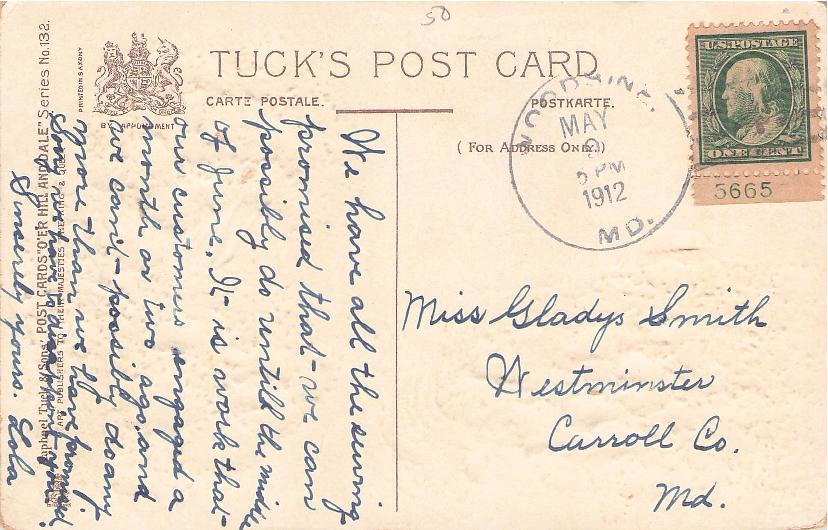 50
TUCK'S POST CARD
CARTE POSTALE.
POSTKARTE.
(FOR ADDRESS ONLY.)
BY APPOINTMENT
WOODBINE,
MAY
5 PM
1912
MD.
U.S. POSTAGE
ONE CENT
5665
Miss Gladys Smith
Westminster
Carroll Co.
Md.
We have all the sewing
promised that we can
possibly do untill the middle
of June. It is work that
our customers engaged a
month or two ago, and
we can't possibly do any
more than we have promised.
Sorry to have to disappoint you.
Sincerely yours. Lola
Raphael Tuck & Sons' "POST CARDS "O'ER HILL AND DALE" Series No. 132.
ART PUBLISHERS TO THEIR MAJESTIES THE KING & QUEEN
PRINTED IN SAXONY